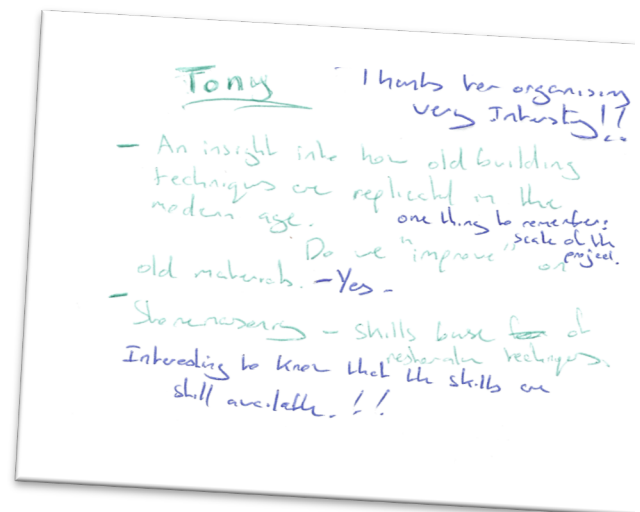 Tony
Thanks for organising
very Interesting!!
- An insight into how old building
techniques are replicated in the
modern age.
one thing to remember:
scale of the
project.
Do we "improve" on
old materials. - Yes -
- Stonemasonry - skills base of
restoration techniques.
Interesting to know that the skills are
still available. !!